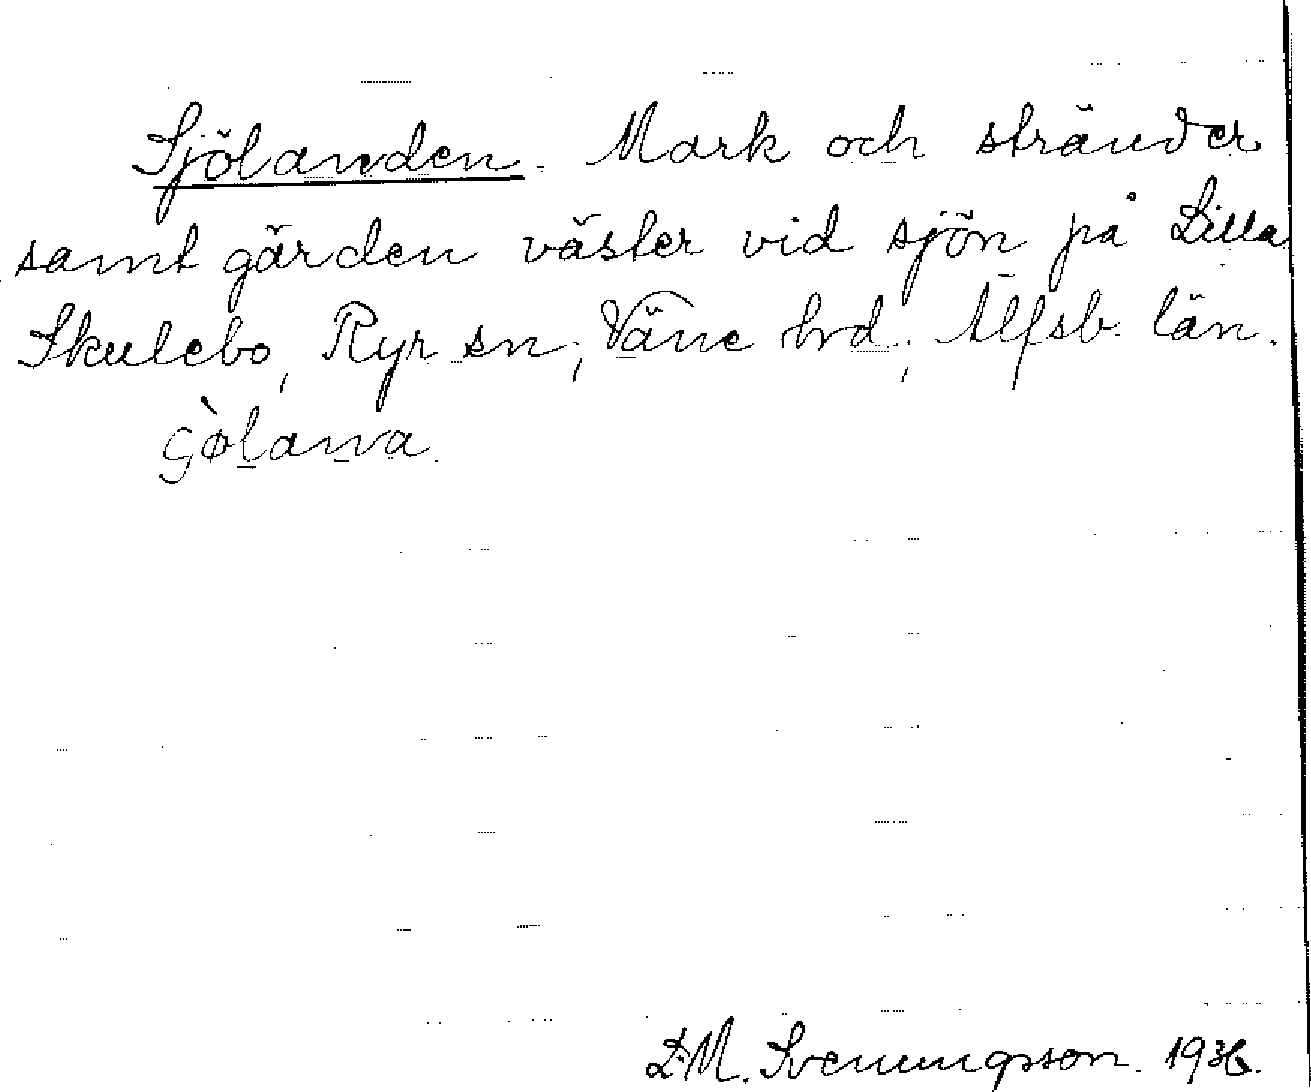 Sjölanden. Mark och stränder
samt gärden väster vid sjön på Lilla
Skulebo, Ryr sn; Väne hd; Älfsb. län.
sø̀lana.
D.M. Svenungsson. 1936.